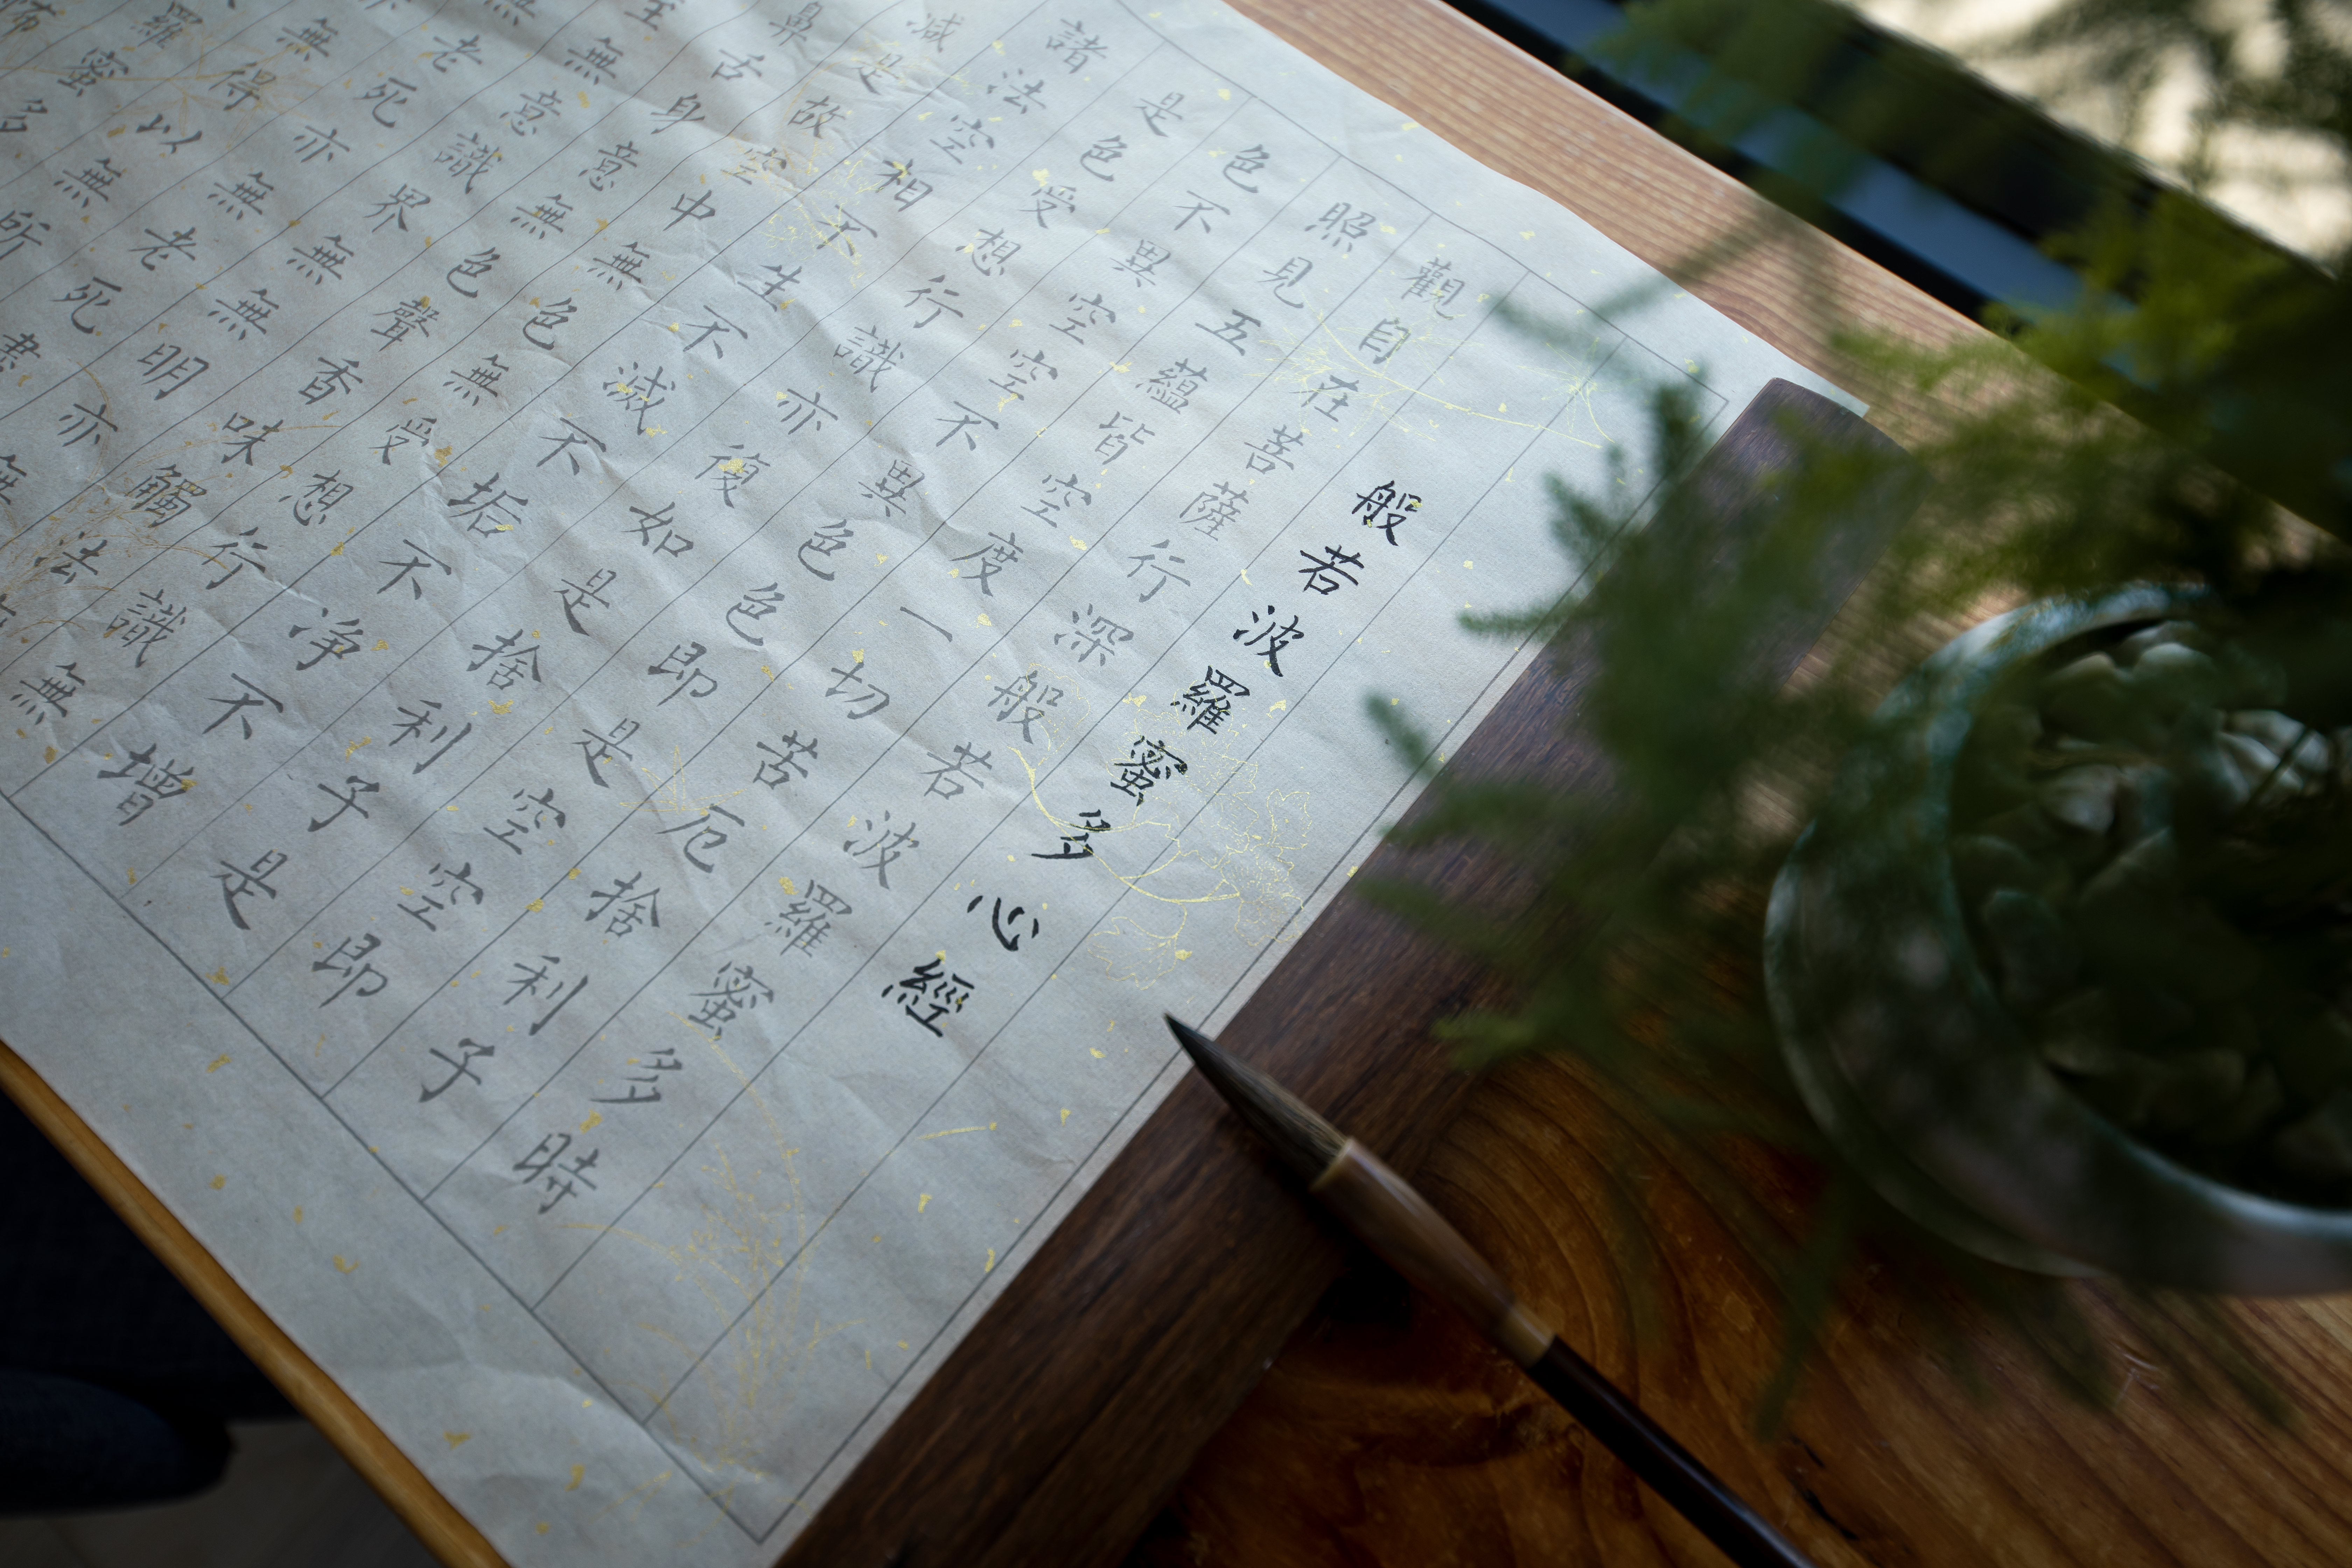 般若波羅蜜多心經
觀自在菩薩行深般若波羅蜜多時
照見五蘊皆空度一切苦厄捨利子
色不異空空不異色色即是空空即
是色受想行識亦復如是捨利子是
諸法空相不生不滅不垢不淨不增
減是故空中無色無受想行識無
鼻舌身意無色聲香味觸法
至無意識界無無明亦無
無老死亦無老死盡
亦無得以無所
羅蜜多
怖